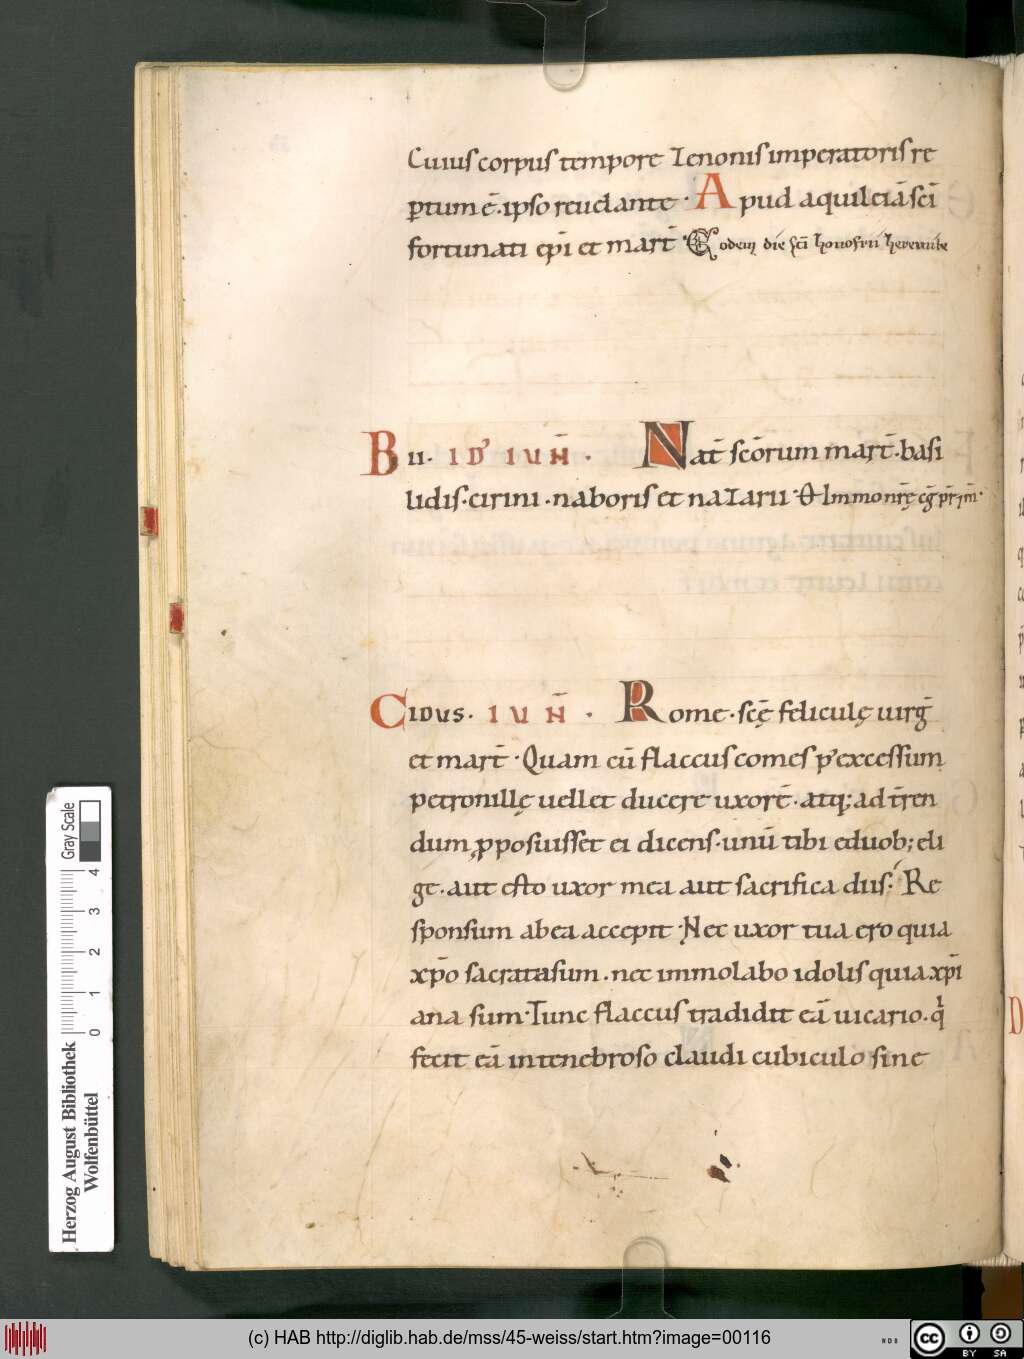 Cuius corpus tempore zenonis imperatoris re
ptum ē. ipso reuelante · Apud aquileiā scī
fortunati epī et mart̄ · Eodem die scī honofrii heremite
B II· ID' IUN̄ · Nat̄ scōrum mart̄· basi
lidis· cirini · naboris et nazarii ·
C IDUS· IUN̄ · Rome· scę̄ feliculę uirḡ
et mart̄ · Quam cū flaccus comes p' excessum
petronillę uellet ducere uxorē· atq; ad t̄ren
dum proposuisset ei dicens· unū tibi eduob; eli
ge· aut esto uxor mea aut sacrifica diis· Re
sponsum ab ea accepit · Nec uxor tua ero quia
xp̄o sacrata sum· nec immolabo idolis quia xp̄i
ana sum· Tunc flaccus tradidit eā uicario· q̄
fecit eā in tenebroso claudi cubiculo sine
Herzog August Bibliothek
Wolfenbüttel
0 1 2 3 4
Gray Scale
(c) HAB http://diglib.hab.de/mss/45-weiss/start.htm?image=00116
cc BY SA